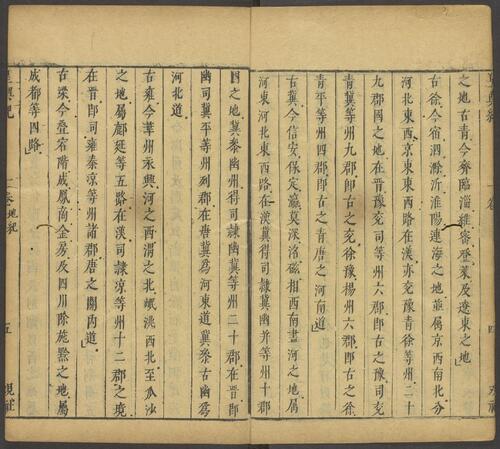 之地古青今齊臨淄濰密登萊及遼東之地
古徐今宿泗滁沂淮陽連海之地並屬京西南北分
河北東西京東東西路在漢亦兗豫青徐等州二十
九郡國之地在晉豫兗司等州六郡即古之豫司兗
青冀等州九郡即古之兗徐豫楊州六郡即古之徐
青平等州四郡即古之青唐之河南道
古冀今信安保定瀛莫深洛磁相西南盡河之地屬
河東河北東西路在漢冀得司隸冀幽并等州十郡
國之地冀參幽州得司隸幽冀等州二十郡在晉即
幽司冀平等州列郡在唐冀為河東道冀參古幽為
河北道
古雍今華州永興河之西渭之北岷洮西北至瓜沙
之地屬鄜延等五路在漢司隸涼等州十二郡之境
在晉即司雍秦涼等州諸郡唐之關內道
古梁今疊宕階成鳳商金房及四川除施黔之地屬
成都等四路
五